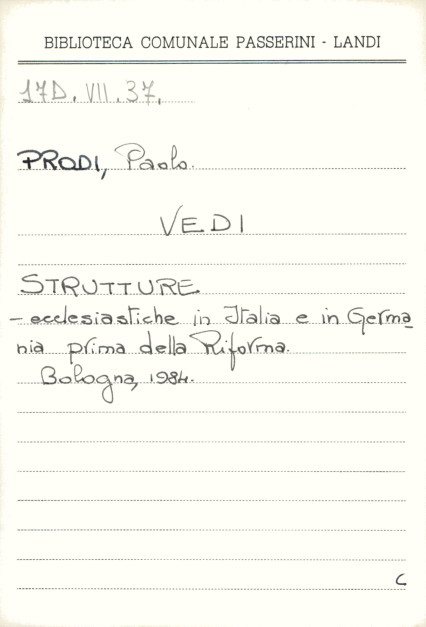 BIBLIOTECA COMUNALE PASSERINI - LANDI
17D. VII. 37.
PRODI, Paolo.
VEDI
STRUTTURE
- ecclesiastiche in Italia e in Germa
nia prima della Riforma.
Bologna, 1984.
C